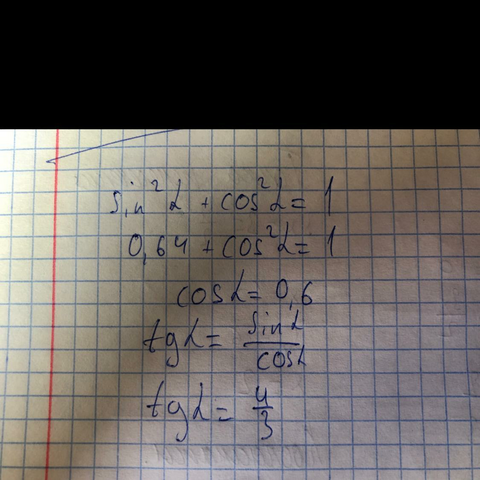 sin²α + cos²α = 1
0,64 + cos²α = 1
cosα = 0,6
tgα = sinα/cosα
tgα = 4/3